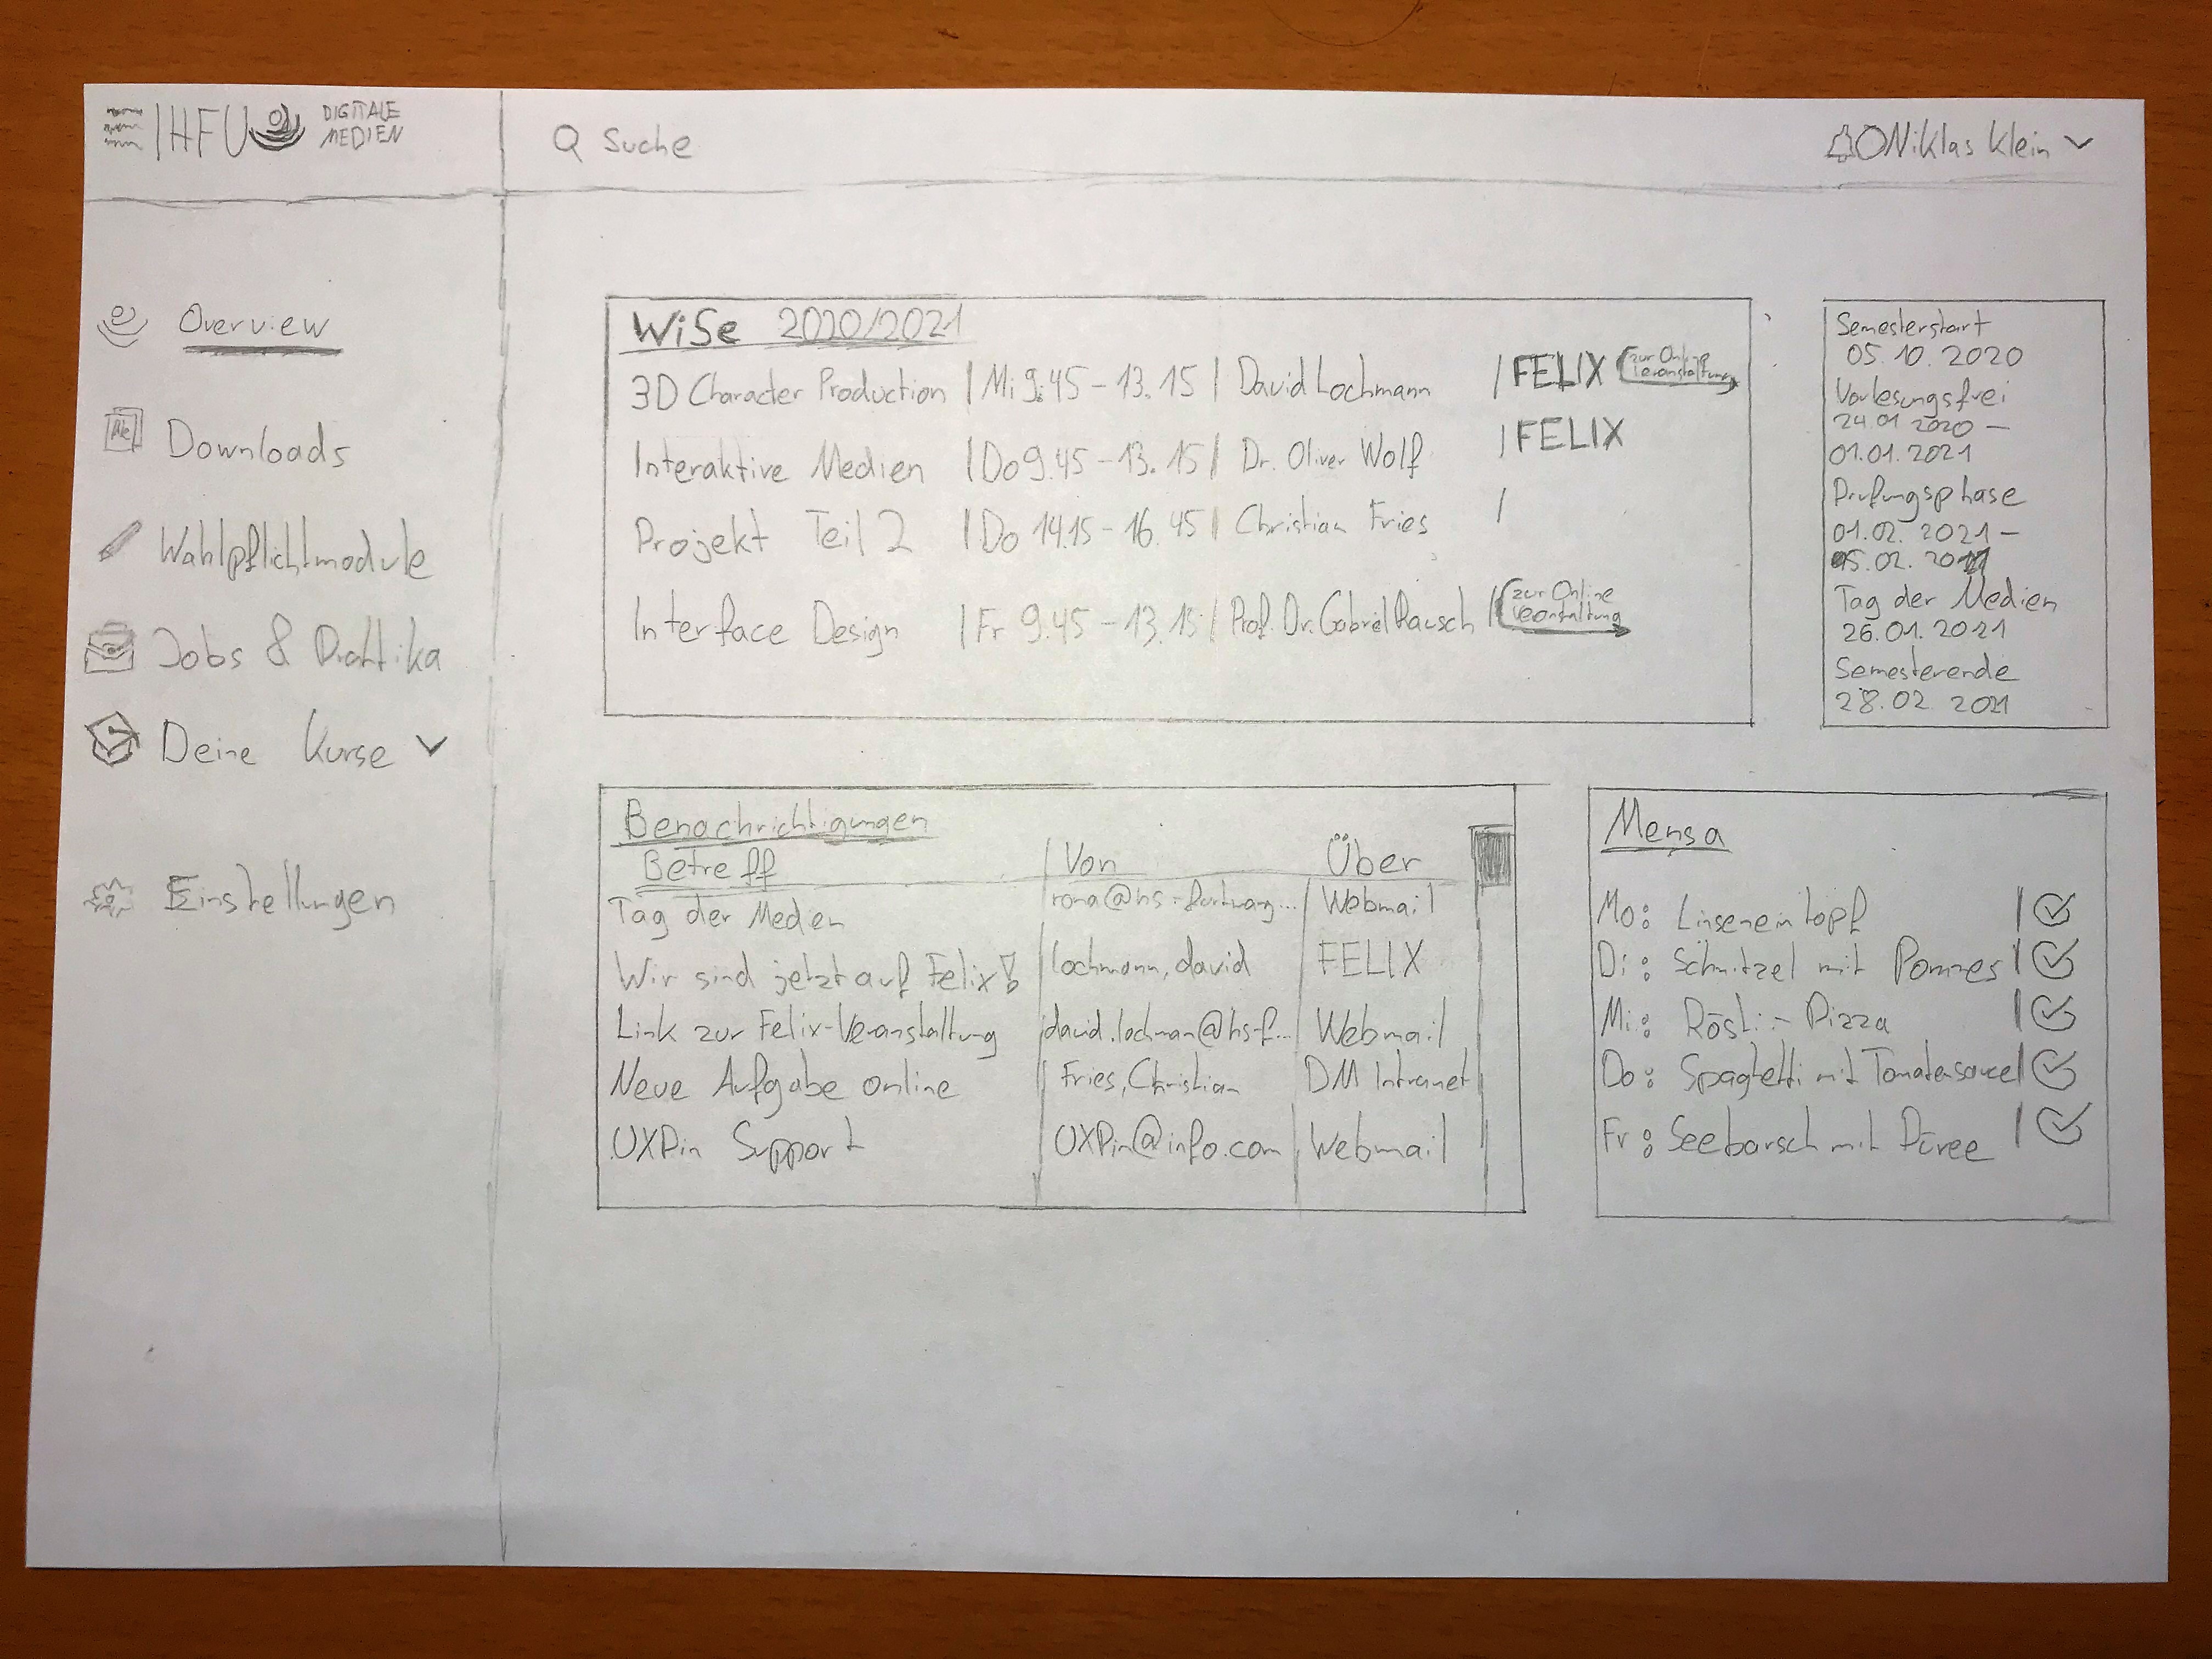 HFU DIGITALE MEDIEN
Suche
Niklas Klein
Overview
Downloads
Wahlpflichtmodule
Jobs & Praktika
Deine Kurse
Einstellungen
WiSe 2020/2021
3D Character Production | Mi 9:45 - 13.15 | David Lochmann | FELIX zur Online Veranstaltung
Interaktive Medien | Do 9.45 - 13.15 | Dr. Oliver Wolf | FELIX
Projekt Teil 2 | Do 14.15 - 16.45 | Christian Fries |
Interface Design | Fr 9.45 - 13.15 | Prof. Dr. Gabriel Rausch | zur Online Veranstaltung
Semesterstart
05.10.2020
Vorlesungsfrei
24.01 2020 -
01.01.2021
Prüfungsphase
01.02.2021 -
05.02.
Tag der Medien
26.01.2021
Semesterende
28.02 2021
Benachrichtigungen
Betreff | Von Über
Tag der Medien | rona@hs-furtwang... | Webmail
Wir sind jetzt auf Felix! | lochmann, david | FELIX
Link zur Felix-Veranstaltung | david.lochman@hs-f... | Webmail
Neue Aufgabe online | Fries, Christian | DM Intranet
UXPin Support | UXPin@info.com | Webmail
Mensa
Mo: Linseneintopf |
Di: Schnitzel mit Pommes |
Mi: Rösti-Pizza |
Do: Spaghetti mit Tomatensauce |
Fr: Seebarsch mit Püree |